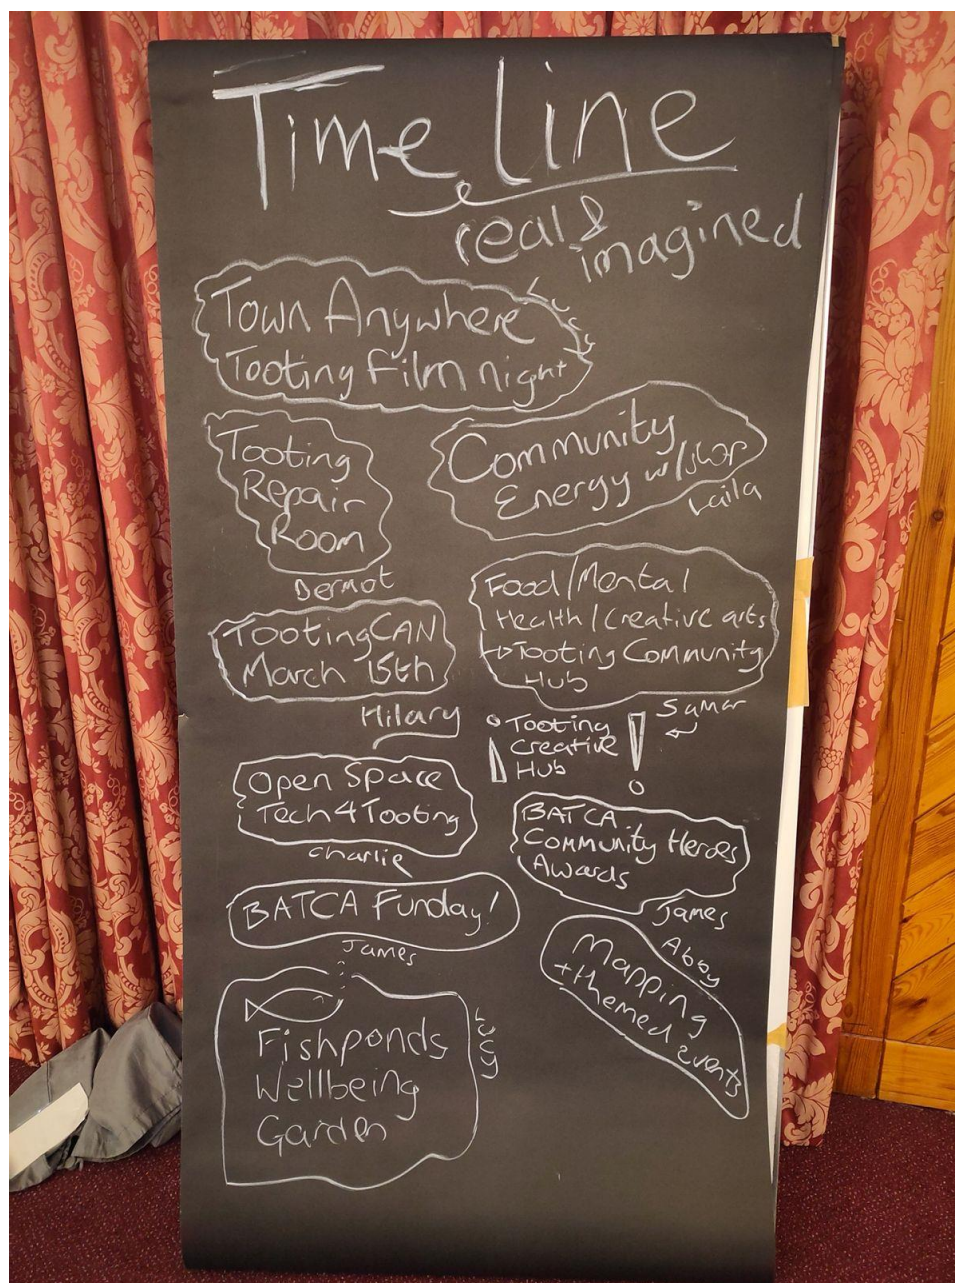 Time Line
real &
imagined
Town Anywhere
Tooting Film night
Lucy
Tooting
Repair
Room
Dermot
Community
Energy w/shop
Laila
TootingCAN
March 15th
Hilary
Food/Mental
Health/Creative arts
↳Tooting Community
Hub
Samar
Tooting
Creative
Hub
!
Open Space
Tech4Tooting
Charlie
BATCA
Community Heroes
Awards
James
BATCA Funday!
James
Abby
Mapping
+themed events
Fishponds
Wellbeing
Garden
Lucy